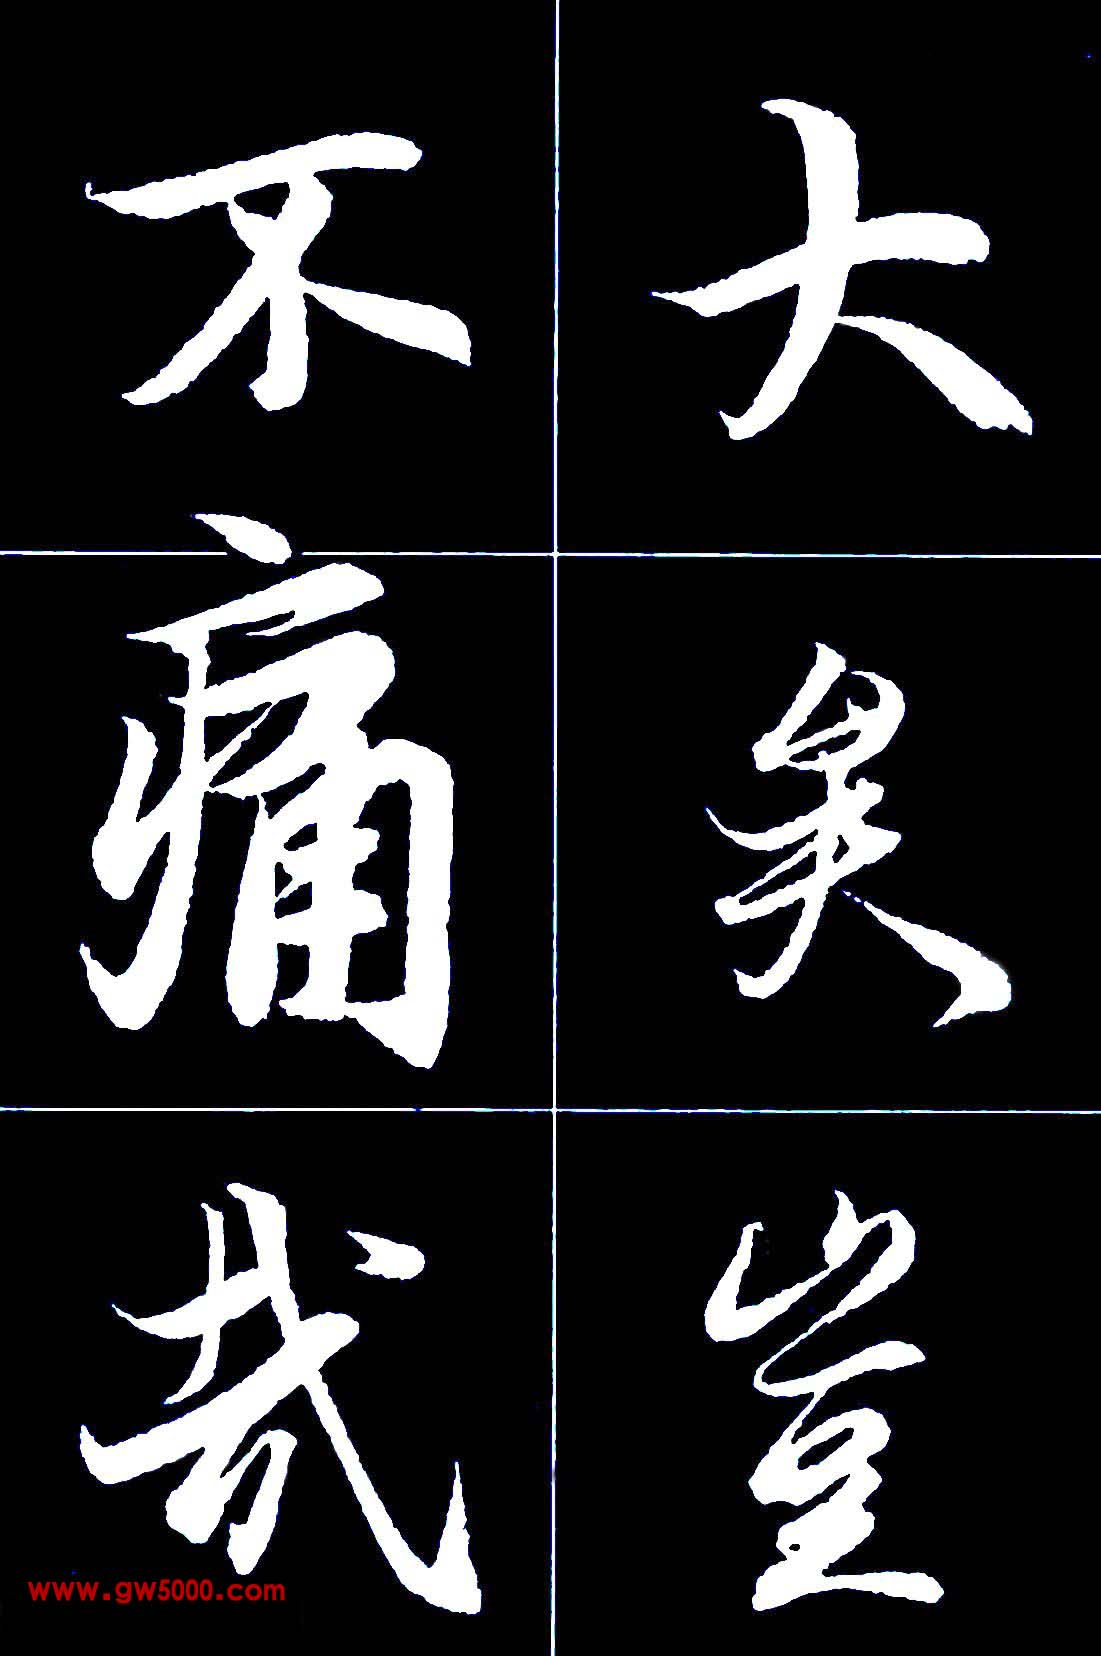 大矣豈
不痛哉
www.gw5000.com